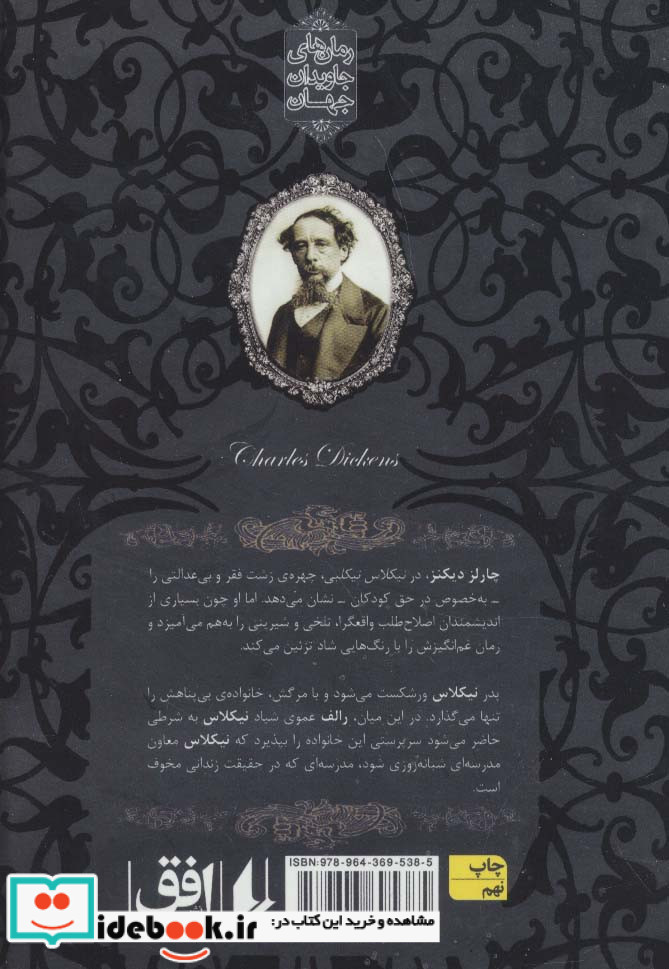 رمان‌های
جاویدان
جهان
Charles Dickens
چارلز دیکنز، در نیکلاس نیکلبی، چهره‌ی زشت فقر و بی‌عدالتی را
ـ به‌خصوص در حق کودکان ـ نشان می‌دهد. اما او چون بسیاری از
اندیشمندان اصلاح‌طلب واقعگرا، تلخی و شیرینی را به‌هم می‌آمیزد و
رمان غم‌انگیزش را با رنگ‌هایی شاد تزئین می‌کند.
پدر نیکلاس ورشکست می‌شود و با مرگش، خانواده‌ی بی‌پناهش را
تنها می‌گذارد. در این میان، رالف عموی شیاد نیکلاس به شرطی
حاضر می‌شود سرپرستی این خانواده را بپذیرد که نیکلاس معاون
مدرسه‌ای شبانه‌روزی شود، مدرسه‌ای که در حقیقت زندانی مخوف
است.
افق
ISBN:978-964-369-538-5
چاپ
نهم
idebook.ir
مشاهده و خرید این کتاب در: